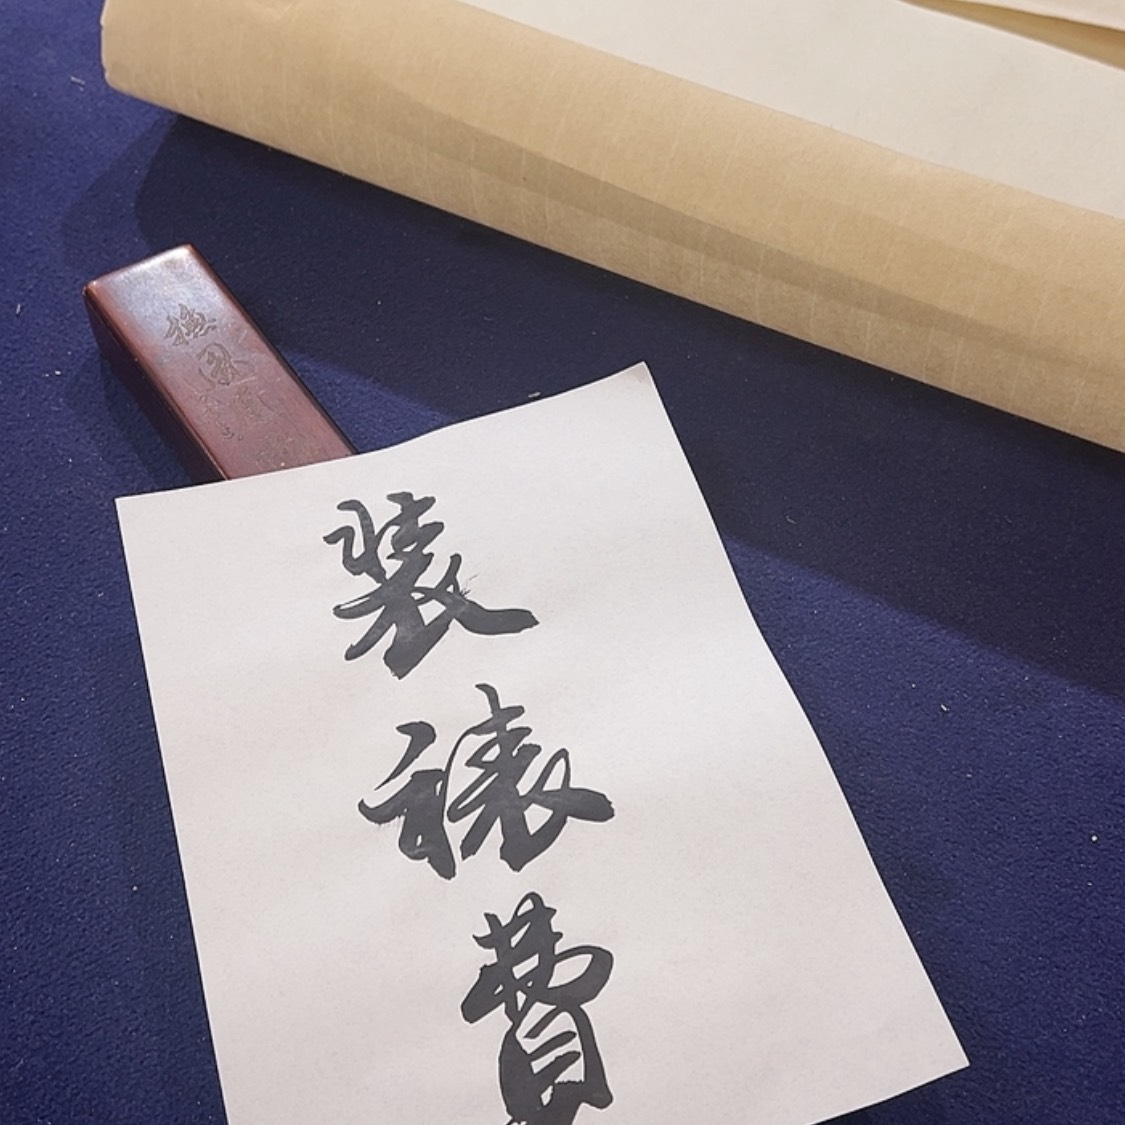 裝裱費